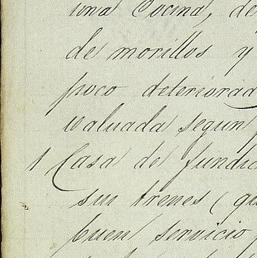 una Cocina, de
de morillos y
poco deteriorad
valuada segun
1 Casa de fundic
sus trenes (qu
buen servicio